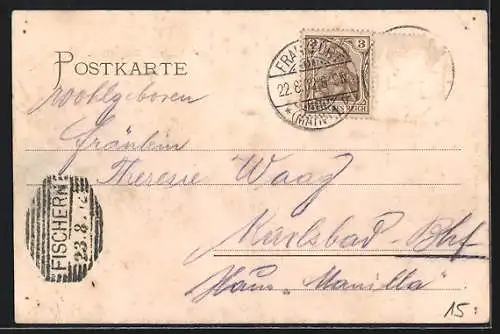 POSTKARTE
3
FRANKFURT
22.8.
(MAIN)
REICH
Wohlgeboren
Fräulein
Therese Waag
Karlsbad - Bhf
Haus „Manilla“
FISCHERN
23.8.
15: